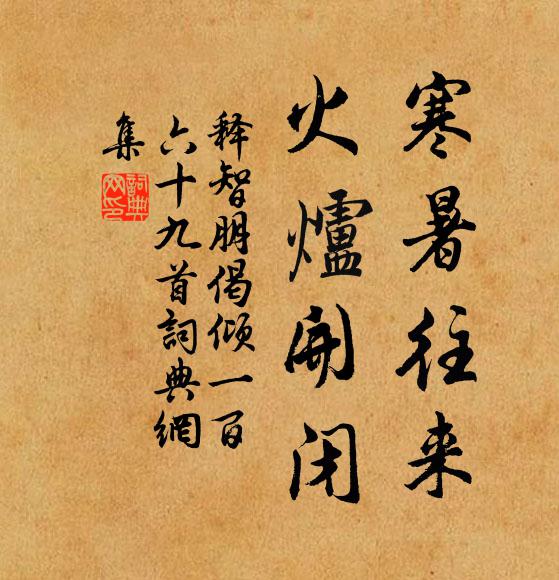 寒暑往来
火爐開闭
释智朋偈倾一百
六十九首詞典網
集
詞典
网印